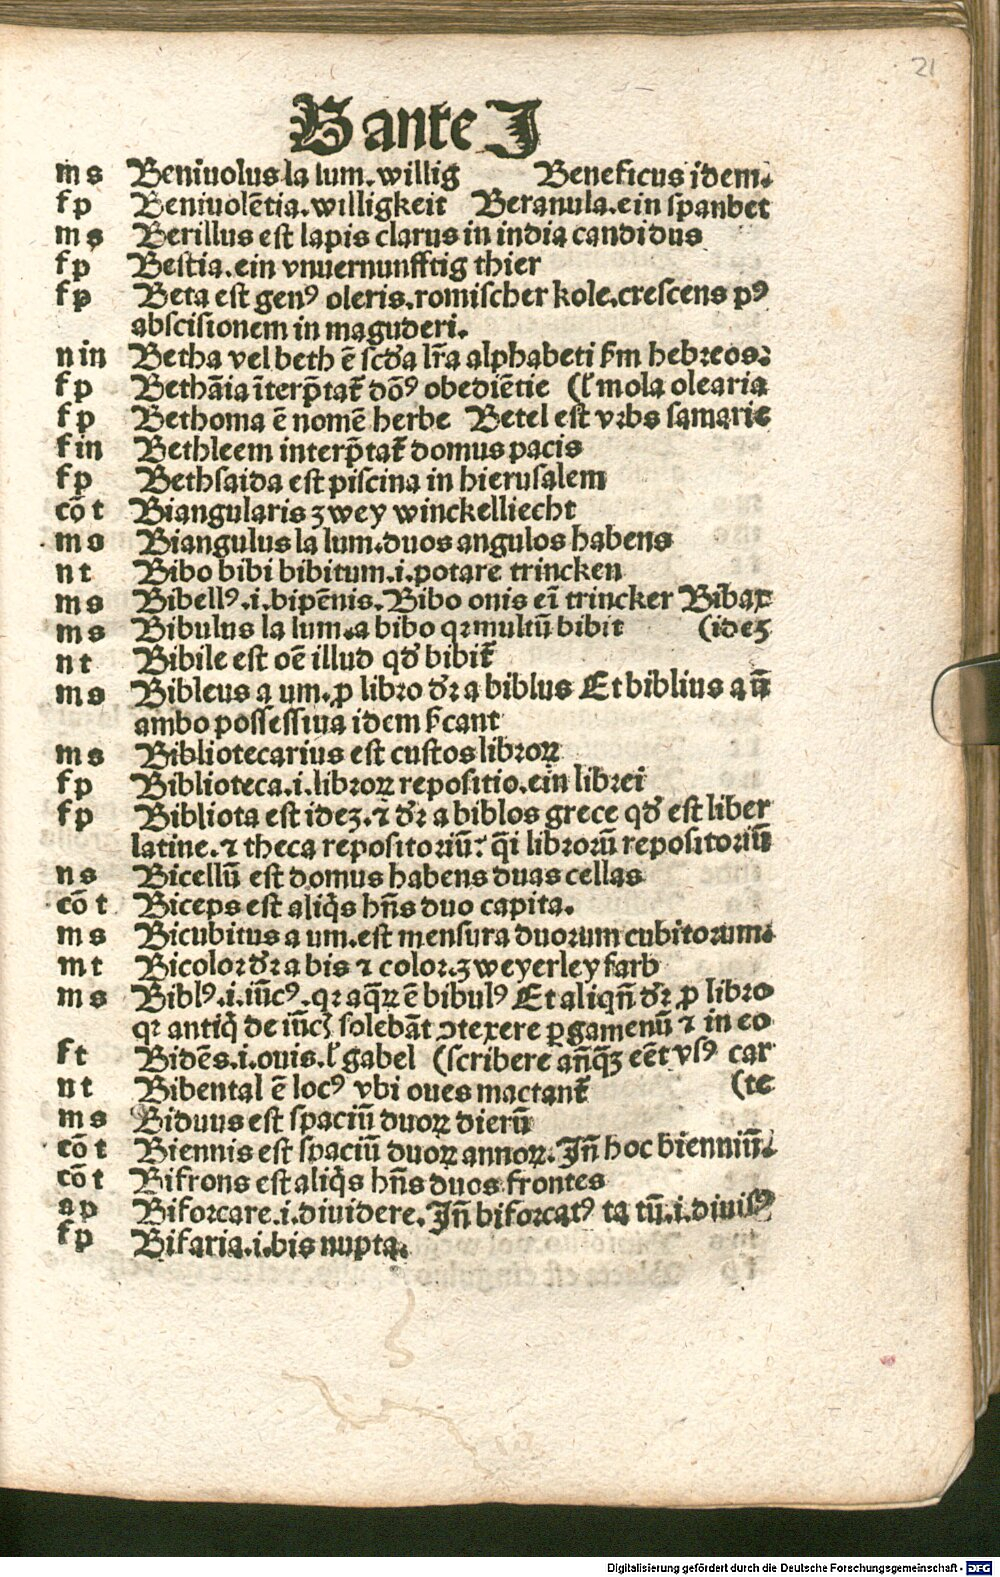 21
B ante J
m s Beniuolus la lum. willig Beneficus idem.
f p Beniuolẽtia. willigkeit Beranula. ein spanbet
m s Berillus est lapis clarus in india candidus
f p Bestia. ein vnuernunfftig thier
f p Beta est genꝰ oleris. romischer kole. crescens pꝰ
abscisionem in maguderi.
n in Betha vel beth ẽ scđa lr̃a alphabeti ẜm hebreos:
f p Bethãia ĩterp̃tat᷑ dõꝰ obediẽtie (ł mola olearia
f p Bethoma ẽ nomẽ herbe Betel est vrbs samarie
f in Bethleem interp̃tat᷑ domus pacis
f p Bethsaida est piscina in hierusalem
cõ t Biangularis zwey winckelliecht
m s Biangulus la lum. duos angulos habens
n t Bibo bibi bibitum. i. potare trincken
m s Bibellꝰ. i. bipẽnis. Bibo onis eĩ trincker Bibax
m s Bibulus la lum. a bibo qꝛ multũ bibit (ideʒ
n t Bibile est oẽ illud qđ bibit᷑
m s Bibleus a um. ꝓ libro đꝛ a biblus Et biblius a ũ
ambo possessiua idem ẜcant
m s Bibliotecarius est custos libroꝝ
f p Biblioteca. i. libroꝝ repositio. ein librei
f p Bibliota est ideʒ. ⁊ đꝛ a biblos grece qđ est liber
latine. ⁊ theca repositoriũ: q̃i librorũ repositoriũ
n s Bicellũ est domus habens duas cellas
cõ t Biceps est aliq̃s hñs duo capita.
m s Bicubitus a um. est mensura duorum cubitorum.
m t Bicolor đꝛ a bis ⁊ color. zweyerley farb
m s Biblꝰ. i. iũcꝰ. qꝛ aq̃ꝝ ẽ bibulꝰ Et aliqñ đꝛ ꝓ libro
qꝛ antiq̃ de iũcꝭ solebãt ↄtexere ꝑgamenũ ⁊ in eo
f t Bidẽs. i. ouis. ł gabel (scribere añq̃ʒ eẽt vsꝰ car
n t Bibental ẽ locꝰ vbi oues mactant᷑ (te
m s Biduus est spaciũ duoꝝ dierũ
cõ t Biennis est spaciũ duoꝝ annoꝝ. Jñ hoc bienniũ.
cõ t Bifrons est aliq̃s hñs duos frontes
a p Biforcare. i. diuidere. Jñ biforcatꝰ ta tũ. i. diuisꝰ
f p Bifaria. i. bis nupta.
Digitalisierung gefördert durch die Deutsche Forschungsgemeinschaft - DFG